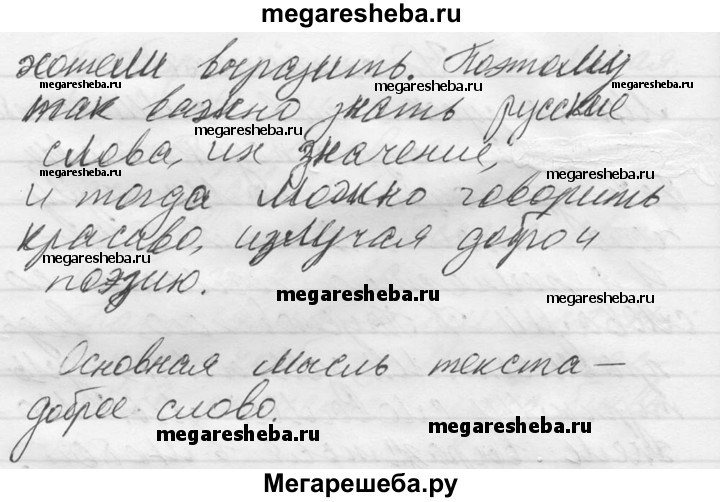 megaresheba.ru
хотели выразить. Поэтому
megaresheba.ru
megaresheba.ru
так важно знать русские
megaresheba.ru
megaresheba.ru
слова, их значение,
megaresheba.ru
и тогда можно говорить
красиво, излучая добро и
megaresheba.ru
megaresheba.ru
поэзию.
megaresheba.ru
megaresheba.ru
Основная мысль текста –
megaresheba.ru
доброе слово.
megaresheba.ru
megaresheba.ru
Мегарешеба.ру